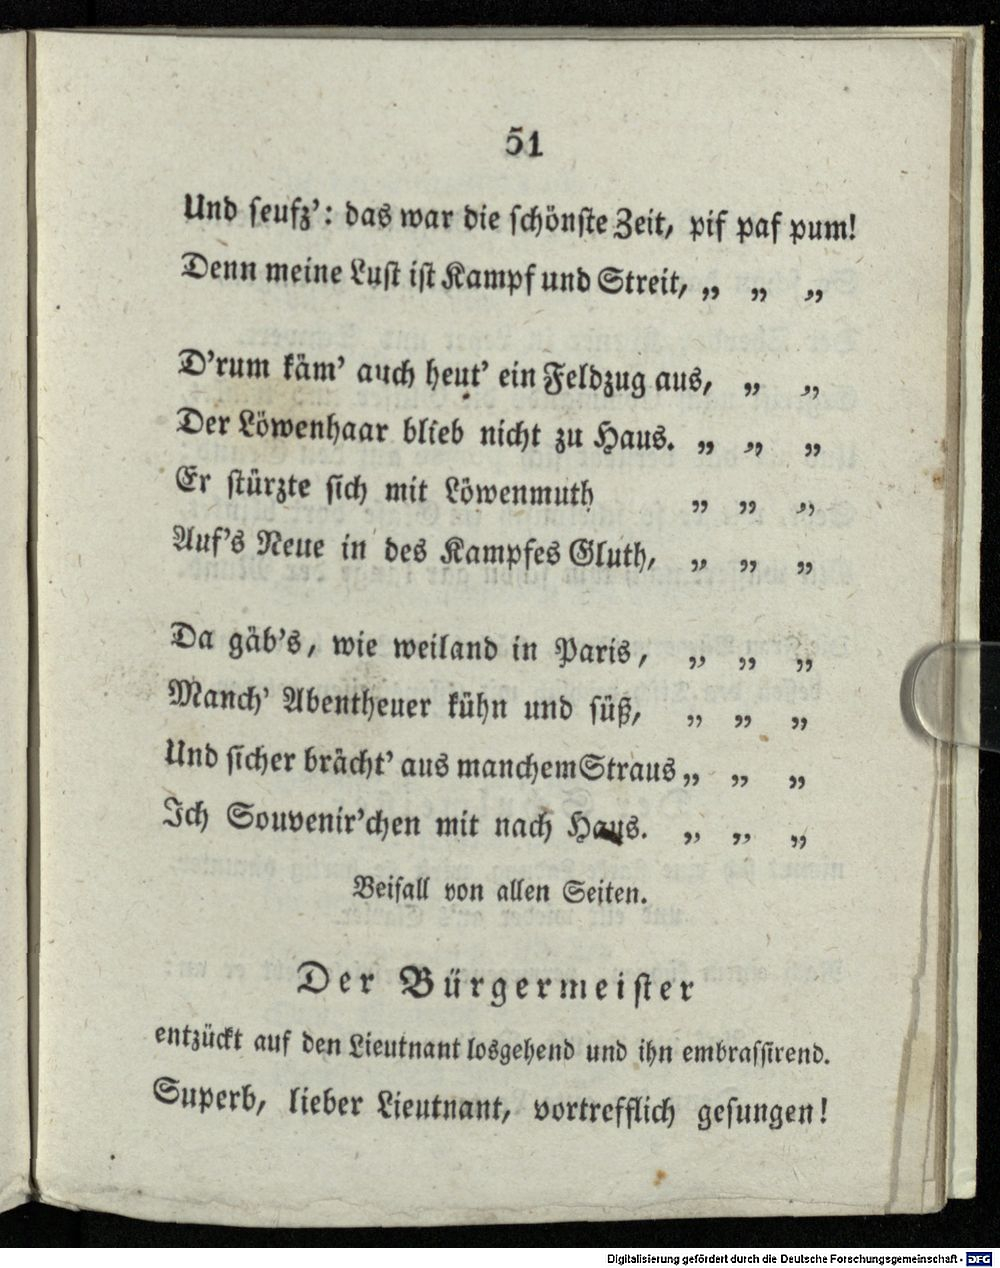 51
Und seufz': das war die schönste Zeit, pif paf pum!
Denn meine Lust ist Kampf und Streit, „ „ „
D'rum käm' auch heut' ein Feldzug aus, „ „
Der Löwenhaar blieb nicht zu Haus. „ „ „
Er stürzte sich mit Löwenmuth „ „ „
Auf's Neue in des Kampfes Gluth, „ „ „
Da gäb's, wie weiland in Paris, „ „ „
Manch' Abentheuer kühn und süß, „ „ „
Und sicher brächt' aus manchem Straus „ „ „
Ich Souvenir'chen mit nach Haus. „ „ „
Beifall von allen Seiten.
Der Bürgermeister
entzückt auf den Lieutnant losgehend und ihn embrassirend.
Superb, lieber Lieutnant, vortrefflich gesungen!
Digitalisierung gefördert durch die Deutsche Forschungsgemeinschaft - DFG